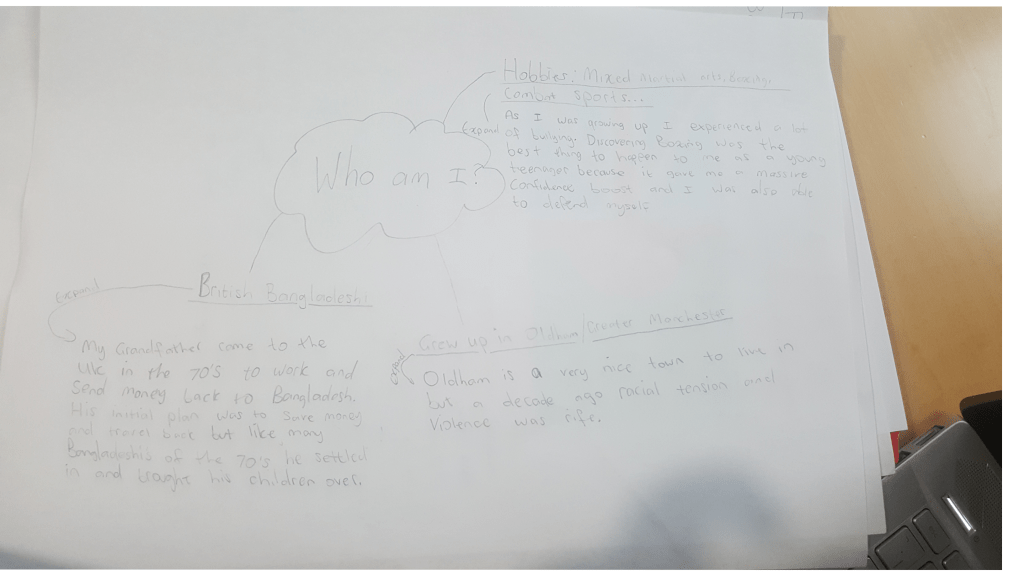 Who am I?
Hobbies: Mixed martial arts, Boxing,
Combat sports...
Expand
As I was growing up I experienced a lot
of bullying. Discovering Boxing was the
best thing to happen to me as a young
teenager because it gave me a massive
Confidence boost and I was also able
to defend myself
British Bangladeshi
Expand
My Grandfather came to the
UK in the 70'S to work and
Send money back to Bangladesh.
His initial plan was to save money
and travel back but like many
Bangladeshis of the 70's he settled
in and brought his children over.
Grew up in Oldham/Greater Manchester
Expand
Oldham is a very nice town to live in
but a decade ago racial tension and
Violence was rife.